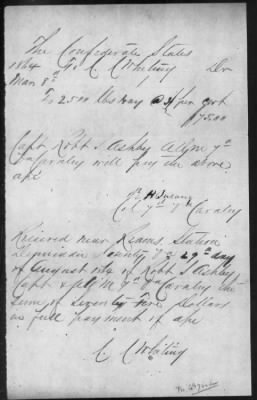 The Confederate States
1864 To C Whiting Dr
Mar 8th
To 2500 lbs Hay @ $3 per cwt
$75.00
Capt Robt S Ashby AQM 7th
Va Cavalry will pay the above
a/c
Col 7th Va Cavalry
Recieved near Reams Station
County Va 29th day
of August 1864 of Robt S Ashby
Capt & AQM 7th Va Cavalry the
sum of Seventy five dollars
in full payment of a/c
C Whiting